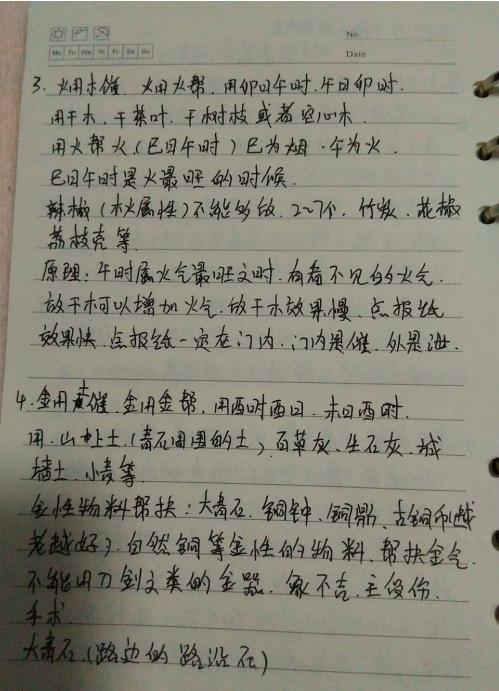 No.
Mo Tu We Th Fr Sa Su
Date
3、火用木催、火用火帮、用卯日午时、午日卯时.
用干木、干茶叶、干树枝或者空心木.
用火帮火、(巳日午时)巳为烟、午为火.
巳日午时是火最旺的时候.
辣椒(木火属性)不能多放、2~7个、竹炭、花椒
荔枝壳等
原理:午时属火气最旺之时、有看不见的火气.
放干木可以增加火气、放干木效果慢、点报纸
效果快、点报纸一定在门内、门内是催、外是泄.
4、金用土催、金用金帮、用酉时酉日、未日酉时.
用、山上土、(青石周围的土)、百草灰、生石灰、城
墙土、小麦等
金性物料帮扶:大青石、铜钟、铜
古铜币(越
老越好)、自然铜等金性的物料、帮扶金气.
不能用刀剑之类的金器、象不吉、主
伤.
手术.
大青石、(路边的路沿石)